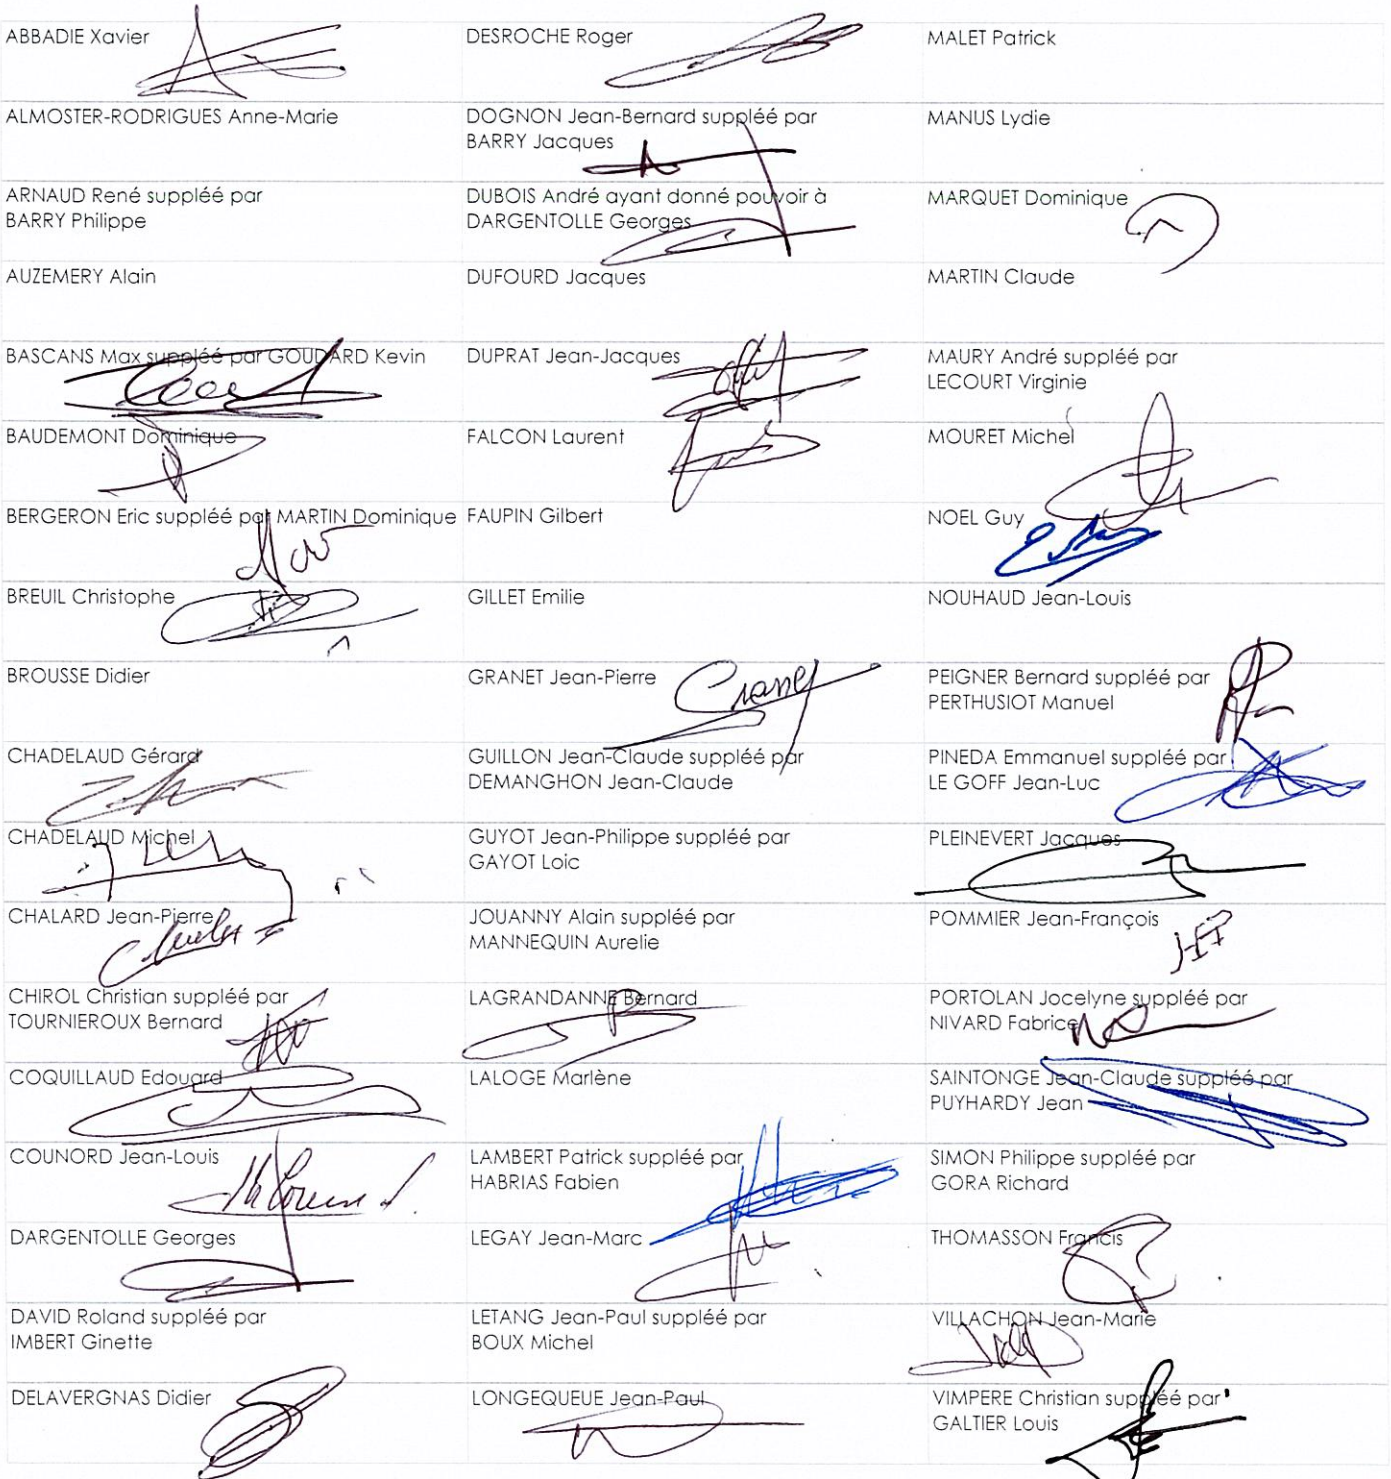 ABBADIE Xavier
DESROCHE Roger
MALET Patrick
ALMOSTER-RODRIGUES Anne-Marie
DOGNON Jean-Bernard suppléé par
BARRY Jacques
MANUS Lydie
ARNAUD René suppléé par
BARRY Philippe
DUBOIS André ayant donné pouvoir à
DARGENTOLLE Georges
MARQUET Dominique
AUZEMERY Alain
DUFOURD Jacques
MARTIN Claude
BASCANS Max suppléé par GOUDARD Kevin
DUPRAT Jean-Jacques
MAURY André suppléé par
LECOURT Virginie
BAUDEMONT Dominique
FALCON Laurent
MOURET Michel
BERGERON Eric suppléé par MARTIN Dominique
FAUPIN Gilbert
NOEL Guy
BREUIL Christophe
GILLET Emilie
NOUHAUD Jean-Louis
BROUSSE Didier
GRANET Jean-Pierre
PEIGNER Bernard suppléé par
PERTHUSIOT Manuel
CHADELAUD Gérard
GUILLON Jean-Claude suppléé par
DEMANGHON Jean-Claude
PINEDA Emmanuel suppléé par
LE GOFF Jean-Luc
CHADELAUD Michel
GUYOT Jean-Philippe suppléé par
GAYOT Loic
PLEINEVERT Jacques
CHALARD Jean-Pierre
JOUANNY Alain suppléé par
MANNEQUIN Aurelie
POMMIER Jean-François
CHIROL Christian suppléé par
TOURNIEROUX Bernard
LAGRANDANNE Bernard
PORTOLAN Jocelyne suppléé par
NIVARD Fabrice
COQUILLAUD Edouard
LALOGE Marlène
SAINTONGE Jean-Claude suppléé par
PUYHARDY Jean
COUNORD Jean-Louis
LAMBERT Patrick suppléé par
HABRIAS Fabien
SIMON Philippe suppléé par
GORA Richard
DARGENTOLLE Georges
LEGAY Jean-Marc
THOMASSON Francis
DAVID Roland suppléé par
IMBERT Ginette
LETANG Jean-Paul suppléé par
BOUX Michel
VILLACHON Jean-Marie
DELAVERGNAS Didier
LONGEQUEUE Jean-Paul
VIMPERE Christian suppléé par
GALTIER Louis